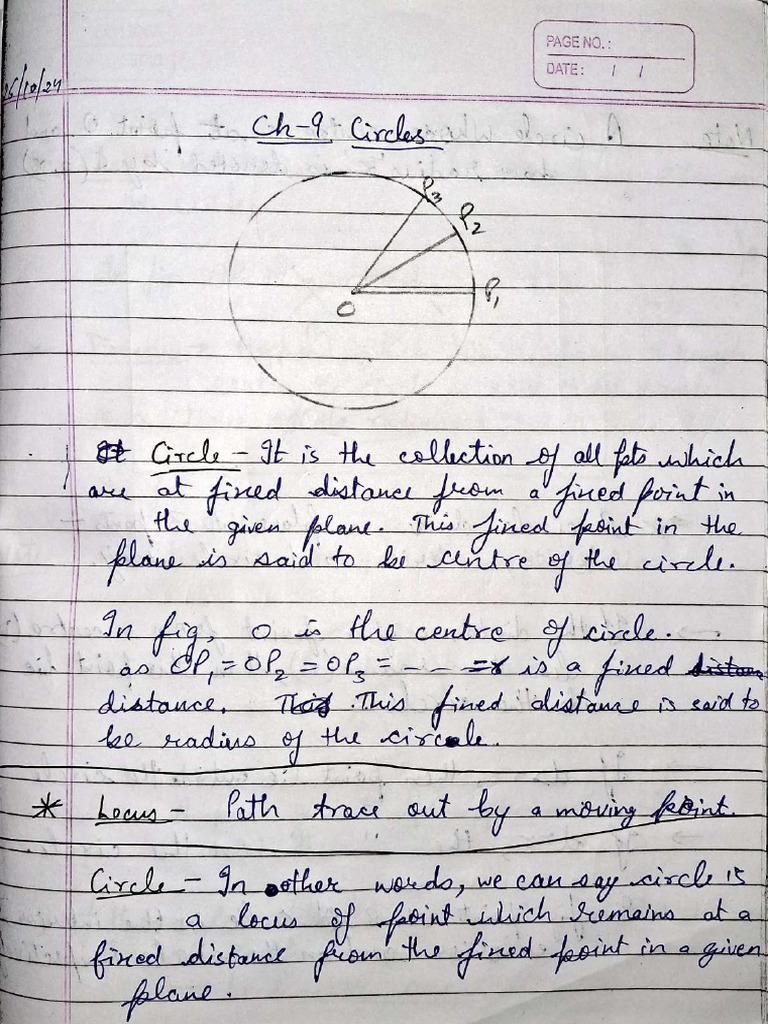 PAGE NO.:
DATE: / /
26/10/24
Ch-9 Circles
P3
P2
P1
O
Circle - It is the collection of all pts which
are at fixed distance from a fixed point in
the given plane. This fixed point in the
plane is said to be centre of the circle.
In fig, O is the centre of circle.
as OP1 = OP2 = OP3 = - - - = r is a fixed
distance. This fixed distance is said to
be radius of the circle.
* Locus - Path trace out by a moving point.
Circle - In other words, we can say circle is
a locus of point which remains at a
fixed distance from the fixed point in a given
plane.